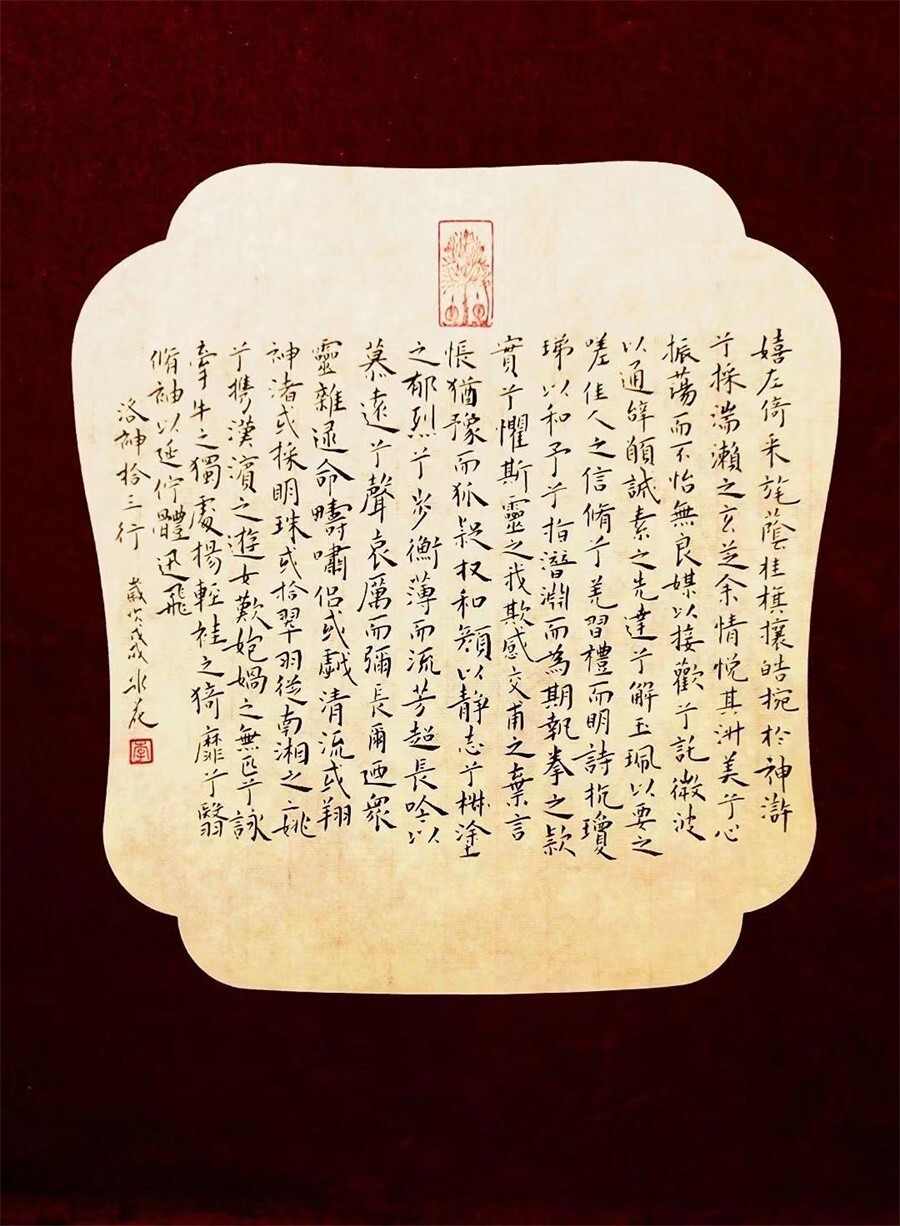 嬉左倚采旄蔭桂旗攘皓捥於神滸
兮採湍瀨之玄芝余情悅其淋美兮心
振蕩而不怡無良媒以接歡兮託微波
以通辭願誠素之先達兮解玉珮以要之
嗟佳人之信脩兮羌習禮而明詩抗瓊
珶以和予兮指潛淵而為期執拳之款
實兮懼斯靈之我欺感交甫之棄言
悵猶豫而狐疑収和顏以靜志兮椒塗
之郁烈兮步衡薄而流芳超長吟以
慕遠兮聲哀厲而彌長爾迺眾
靈雜遝命疇嘯侶或戲清流或翔
神渚或採明珠或拾翠羽從南湘之二姚
兮攜漢濱之遊女歎炮媧之無匹兮詠
牽牛之獨處揚輕袿之猗靡兮翳
脩袖以延佇體迅飛
洛神拾三行
歲次戊戌冰花
李